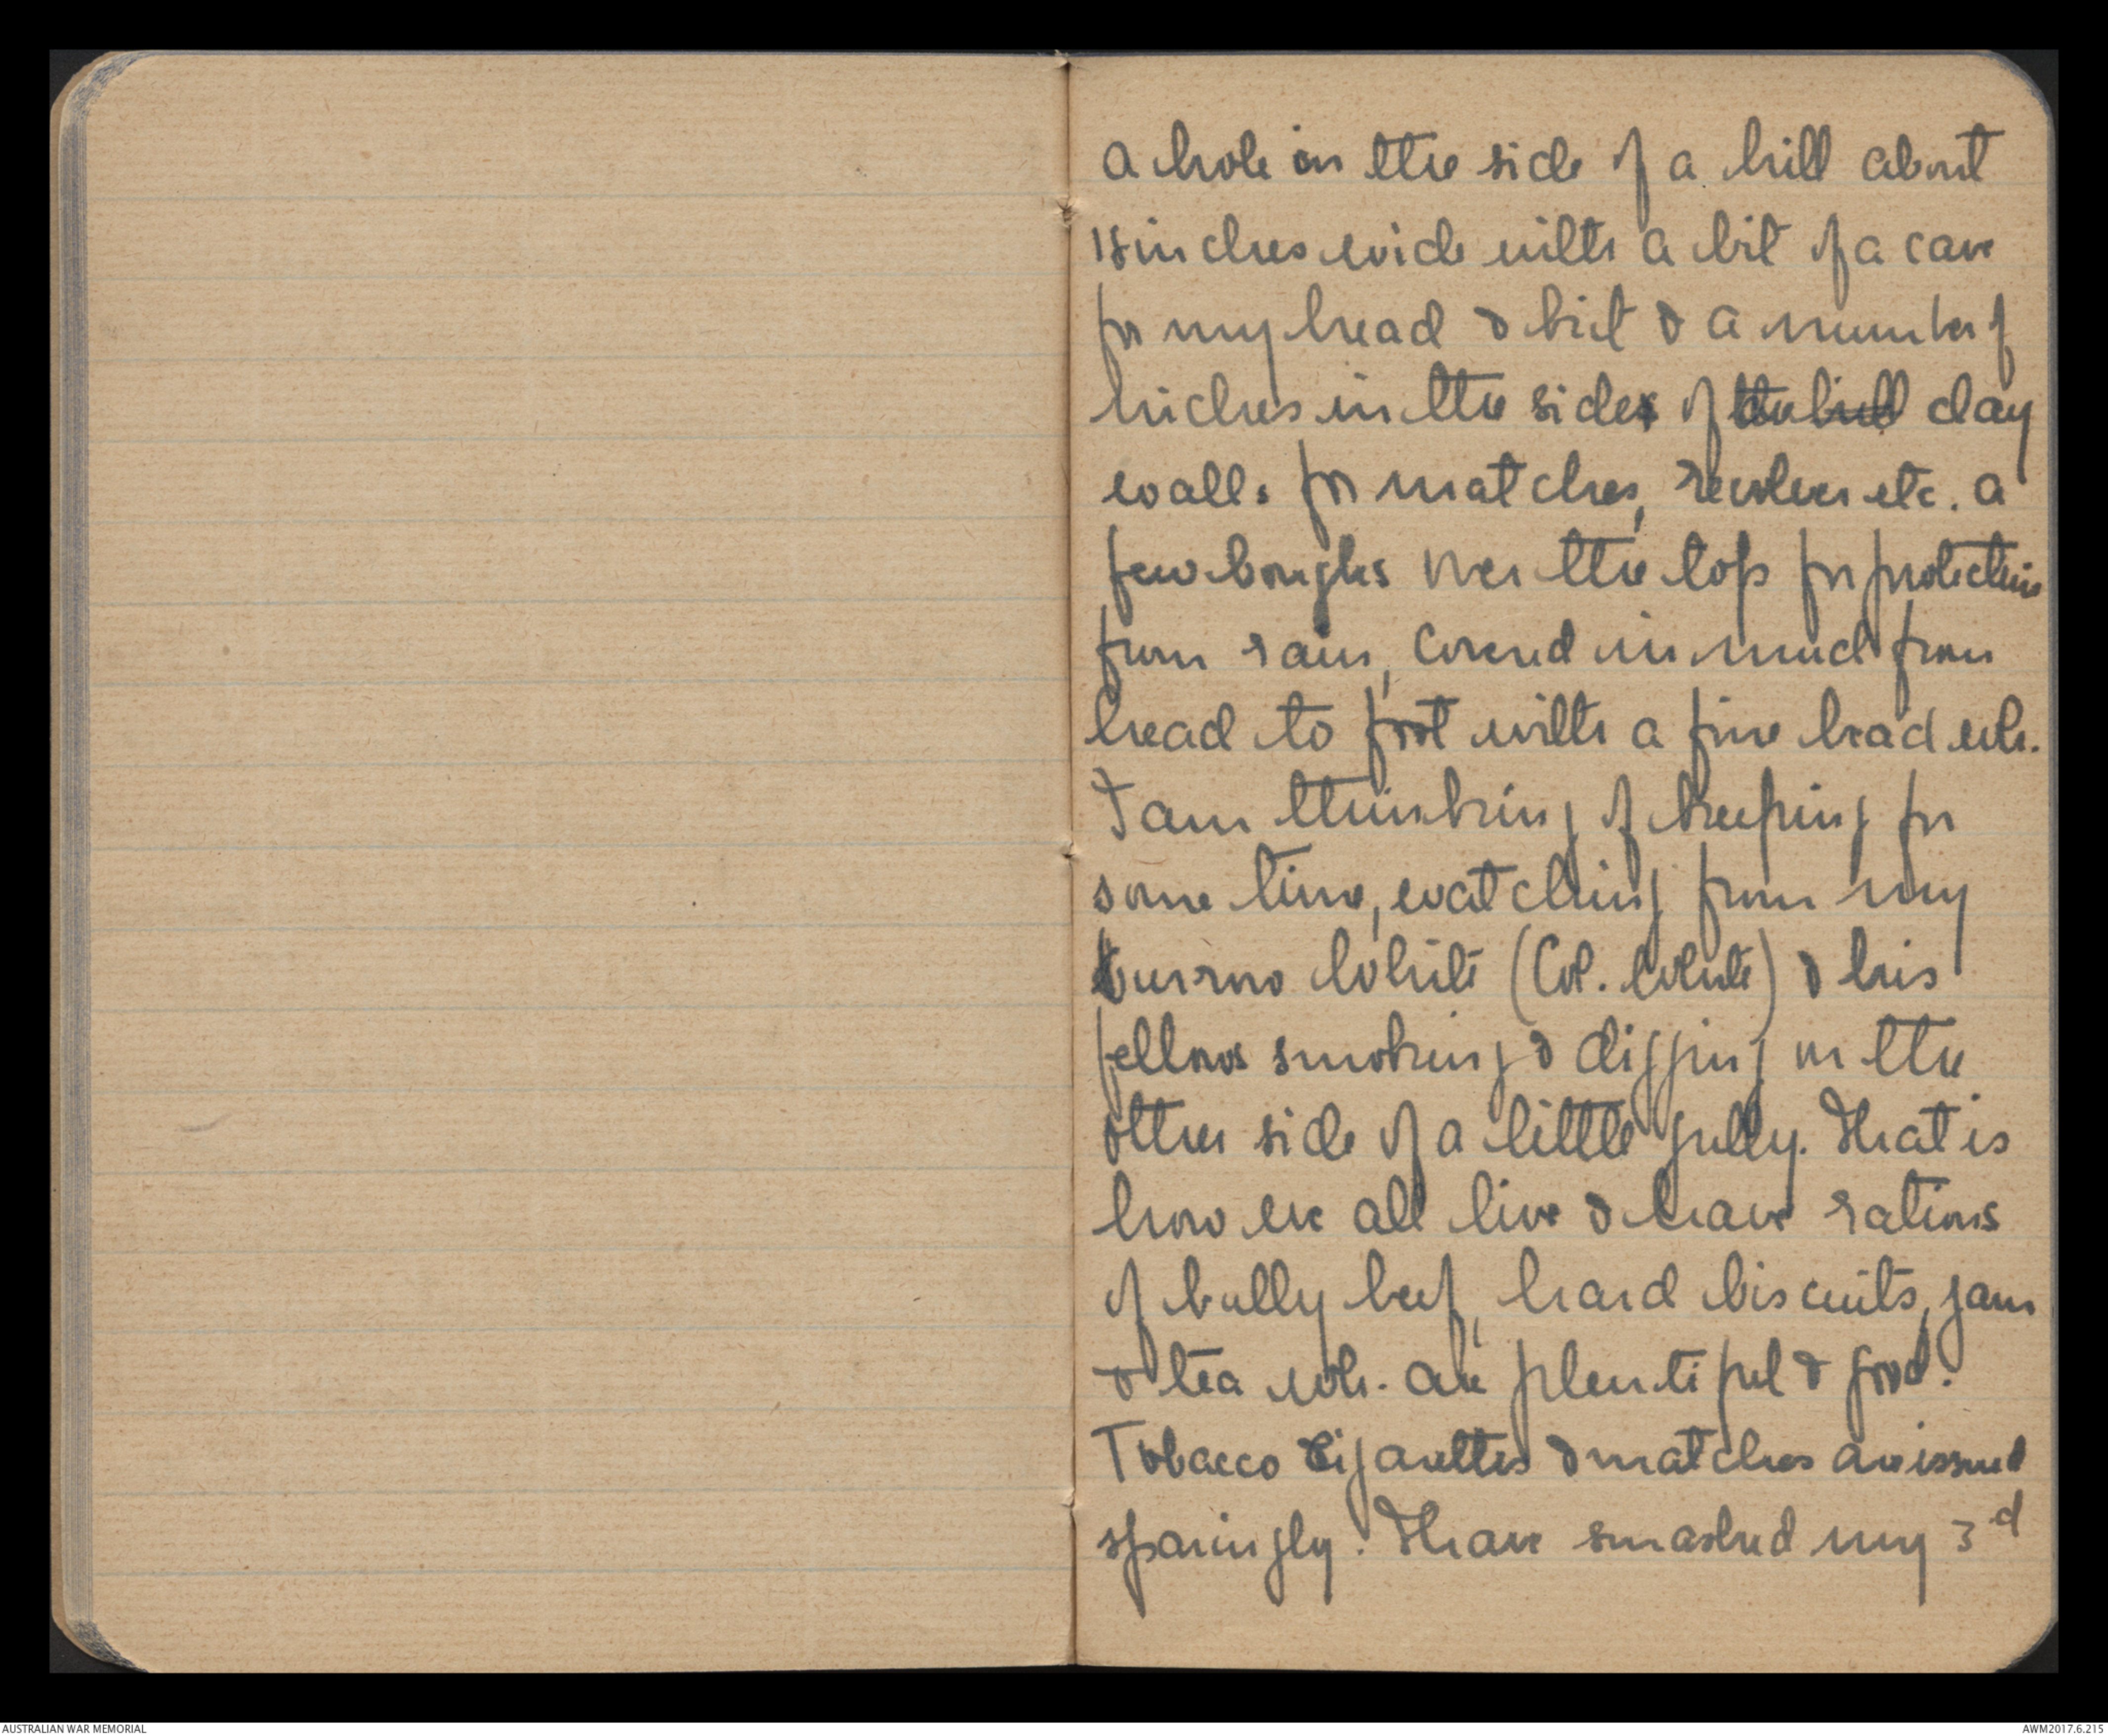 a hole in the side of a hill about
18 inches wide with a bit of a cave
for my head & kit & a number of
niches in the sides of the hill clay
walls for matches, revolver etc. a
few boughs over the top for protection
from rain, covered in mud from
head to foot with a fine beard wh.
I am thinking of keeping for
some time, watching from my
burrow White (Col. White) & his
fellows smoking & digging on the
other side of a little gully. That is
how we all live & have rations
of bully beef, hard biscuits, jam
& tea wh. are plentiful & good.
Tobacco Cigarettes & matches are issued
sparingly. I have smashed my 3d
AUSTRALIAN WAR MEMORIAL
AWM2017.6.215